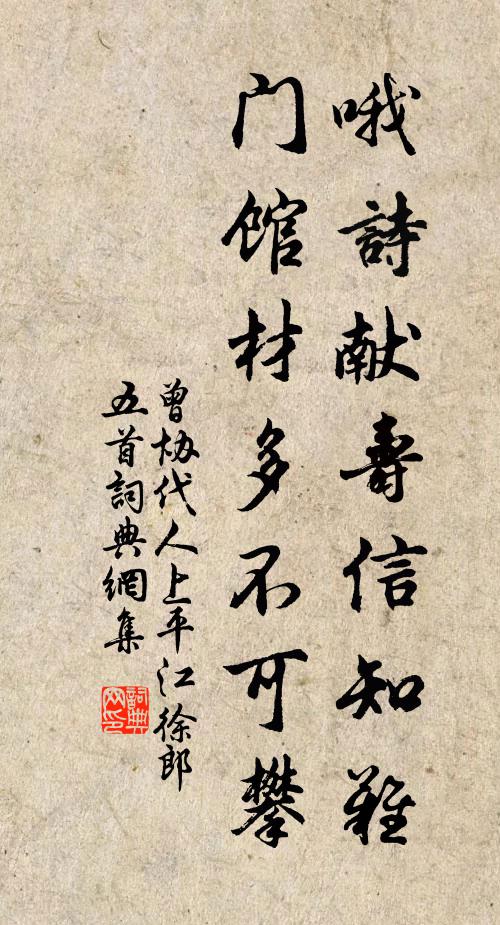 哦詩献壽信知難
门馆材多不可攀
曾协代人上平江徐郎
五首詞典網集
詞典网印